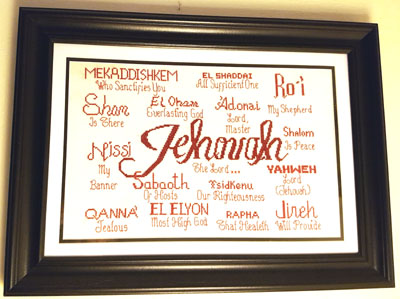 MEKADDISHKEM
Who Sanctifies You
EL SHADDAI
All Sufficient One
Ro'i
My Shepherd
Sham
Is There
El Olam
Everlasting God
Adonai
Lord,
Master
Shalom
Is Peace
Jehovah
The Lord...
Nissi
My
Banner
Sabaoth
Of Hosts
Tsidkenu
Our Righteousness
YAHWEH
Lord
(Jehovah)
QANNA'
Jealous
EL ELYON
Most High God
RAPHA
That Healeth
Jireh
Will Provide